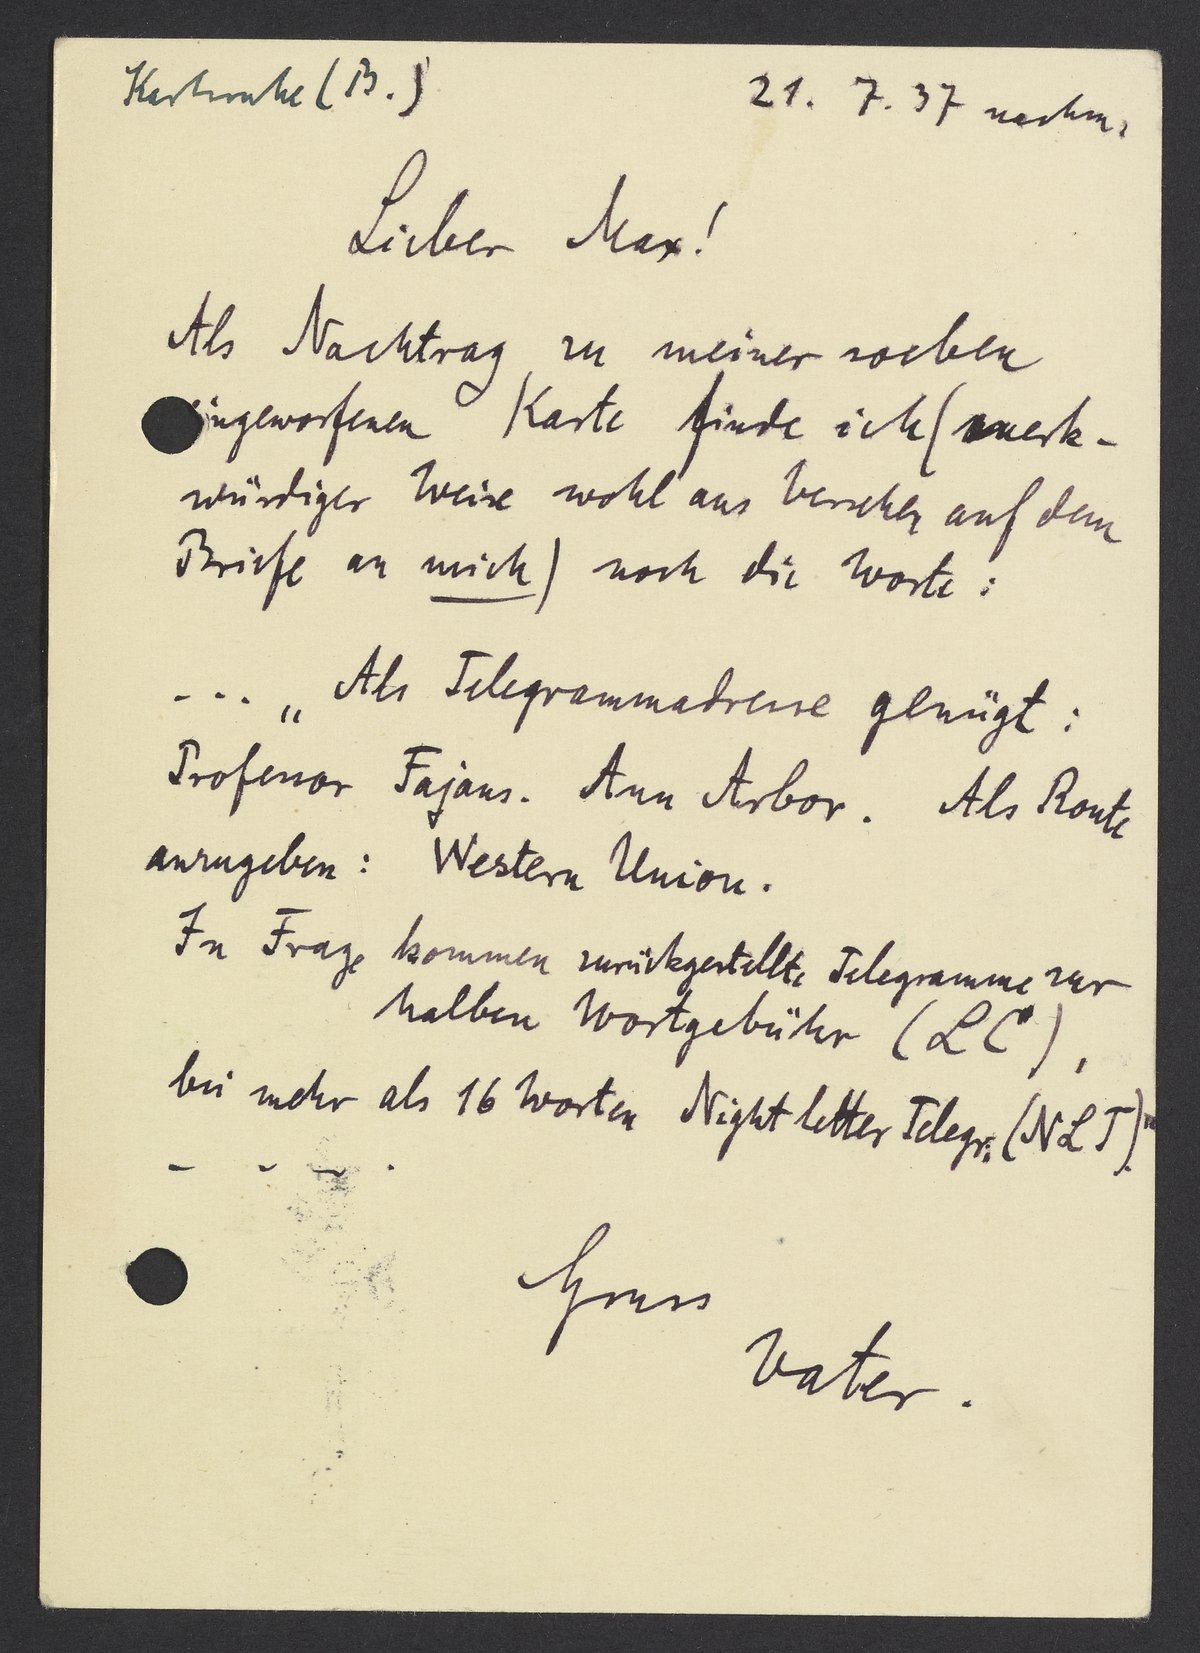 Karlsruhe (B.) 21. 7. 37 nachm.
Lieber Max!
Als Nachtrag zu meiner soeben
eingeworfenen Karte finde ich (merk-
würdiger Weise wohl aus Versehen auf dem
Briefe an mich) noch die Worte:
- - - „Als Telegrammadresse genügt:
Professor Fajans. Ann Arbor. Als Route
anzugeben: Western Union.
In Frage kommen zurückgestellte Telegramme zur
halben Wortgebühr (LC),
bei mehr als 16 Worten Nightletter Telegr. (NLT)."
- - - .
Gruss
Vater.